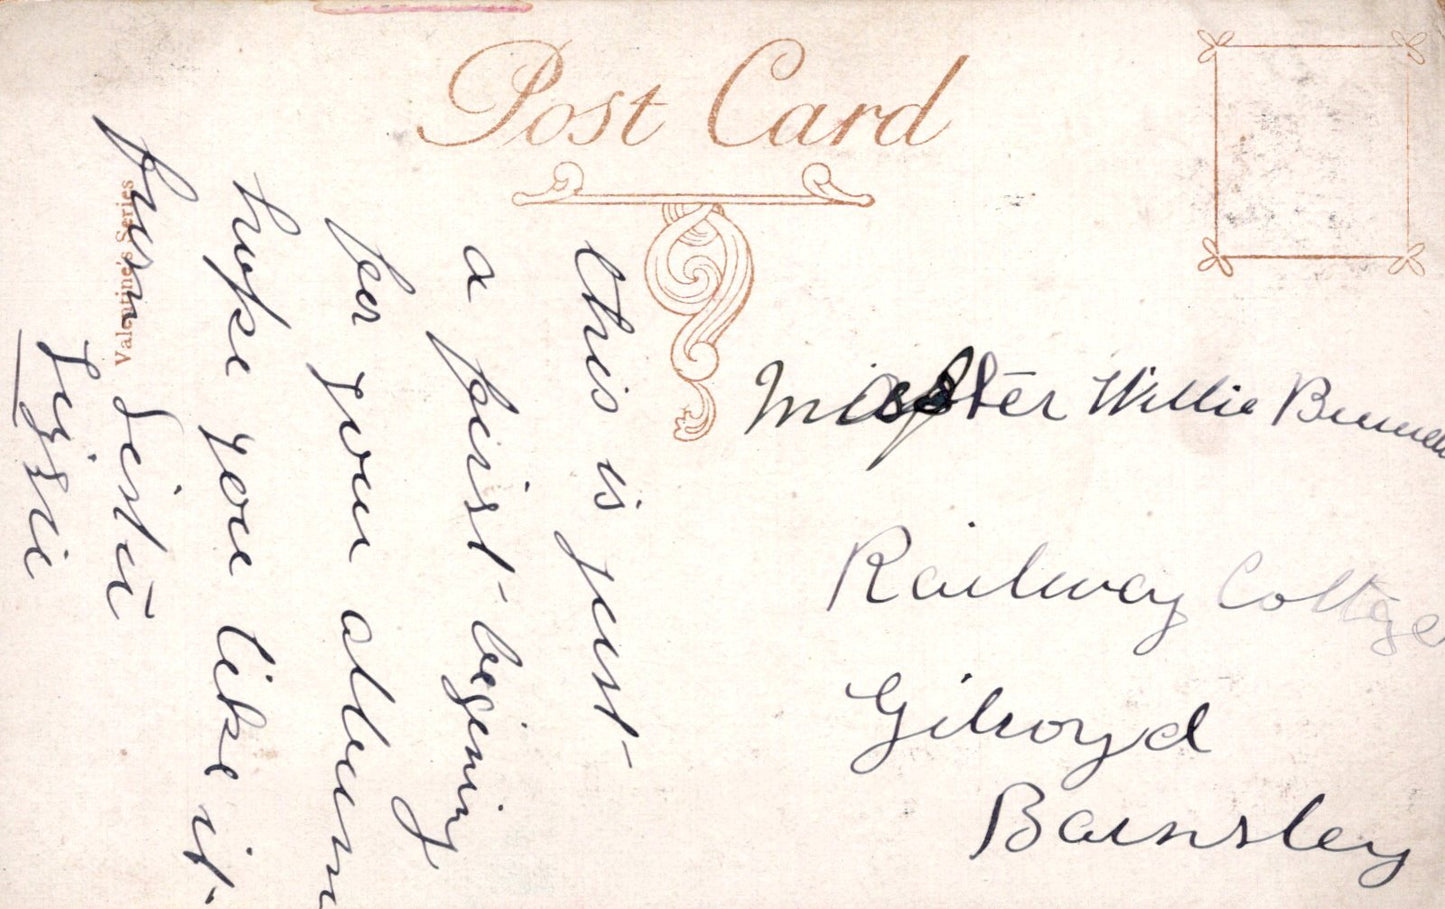 Post Card
Valentine's Series
this is just
a first begining
for your album
hope you like it
from Sister
Lizzie
Master Willie
Railway Cottage
Gilroyd
Barnsley